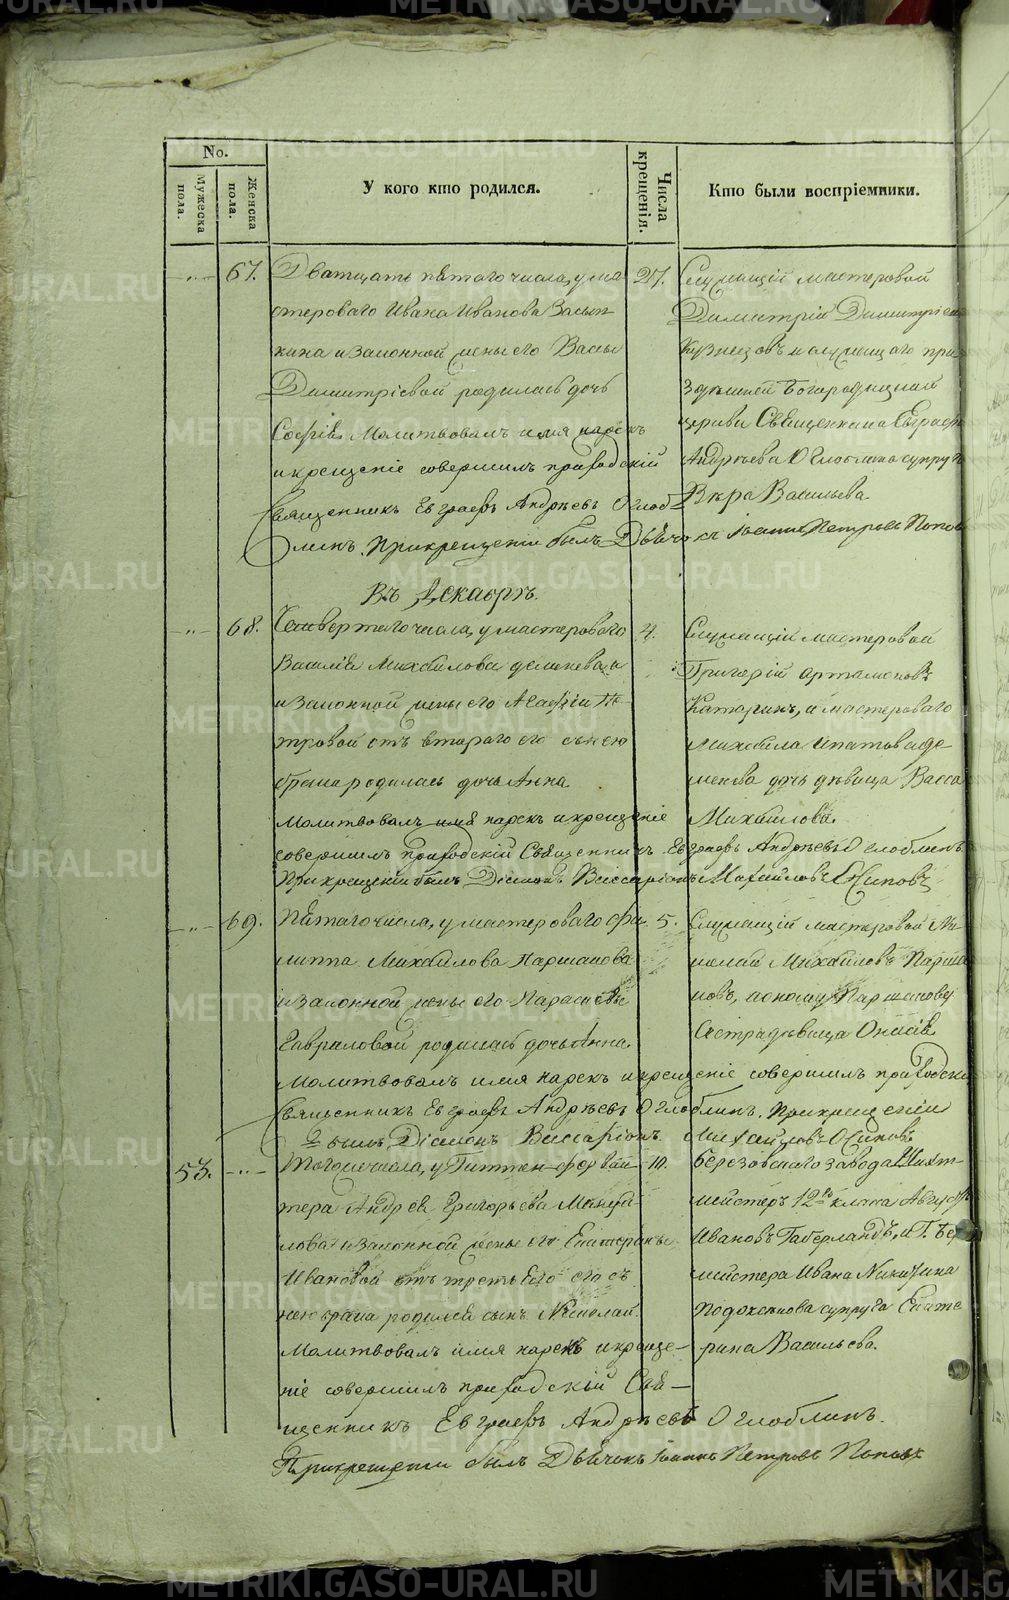 No.
Мужеска пола.
Женска пола.
У кого кто родился.
Числа крещенія.
Кто были воспріемники.
67. Дватцать пятаго числа, у ма
стероваго Ивана Иванова
кина и законной жены его Вассы
Димитріевой родилась дочь
Софія. Молитвовалъ имя нарекъ
и крещеніе совершилъ приходскій
Священникъ Евграфъ Андрѣевъ Оглоб
линъ. При крещеніи былъ Дьячокъ Іоаннъ Петровъ Поповъ
27. Служащій мастеровой
Димитрій Димитріевъ
Кузнецовъ и служащаго при
здѣшней Богородицкой
церкви Священника Евграфа
Андрѣева Оглоблина супруга
Вѣра Васильева.
Въ Декабрѣ.
68. Четвертаго числа, у мастероваго
Василія Михайлова
и законной жены его Агафіи Пе
тровой отъ втораго его съ нею
брака родилась дочь Анна.
Молитвовалъ имя нарекъ и крещеніе
совершилъ приходскій Священникъ Евграфъ Андрѣевъ Оглоблинъ.
При крещеніи былъ Діаконъ Виссаріонъ Михайловъ Осиповъ
4. Служащій мастеровой
Григорій Артамоновъ
и мастероваго
Михайла Ипатова
дочь дѣвица Васса
Михайлова.
69. Пятаго числа, у мастероваго Фи
липпа Михайлова Паршакова
и законной жены его Парасковьи
Гавриловой родилась дочь Анна.
Молитвовалъ имя нарекъ и крещеніе совершилъ приходскій
Священникъ Евграфъ Андрѣевъ Оглоблинъ. При крещеніи
былъ Діаконъ Виссаріонъ Михайловъ Осиповъ
5. Служащій мастеровой Ни
колай Михайловъ Парша
ковъ, и оному Паршакову
сестра дѣвица
53. Тогоже числа, у Гиттенфервал
тера Андрея Григорьева Мануй
лова и законной жены его Екатерины
Ивановой отъ третьяго его съ
нею брака родился сынъ Николай.
Молитвовалъ имя нарекъ и креще-
ніе совершилъ приходскій Свя-
щенникъ Евграфъ Андрѣевъ Оглоблинъ.
При крещеніи былъ Дьячокъ Іоаннъ Петровъ Поповъ
10. Березовскаго завода Шихт-
мейстеръ 12го класса Августъ
Ивановъ Габерландъ, и Г. Бер
мейстера Ивана Никитина
Подоксенова супруга Екате
рина Васильева.
METRIKI.GASO-URAL.RU